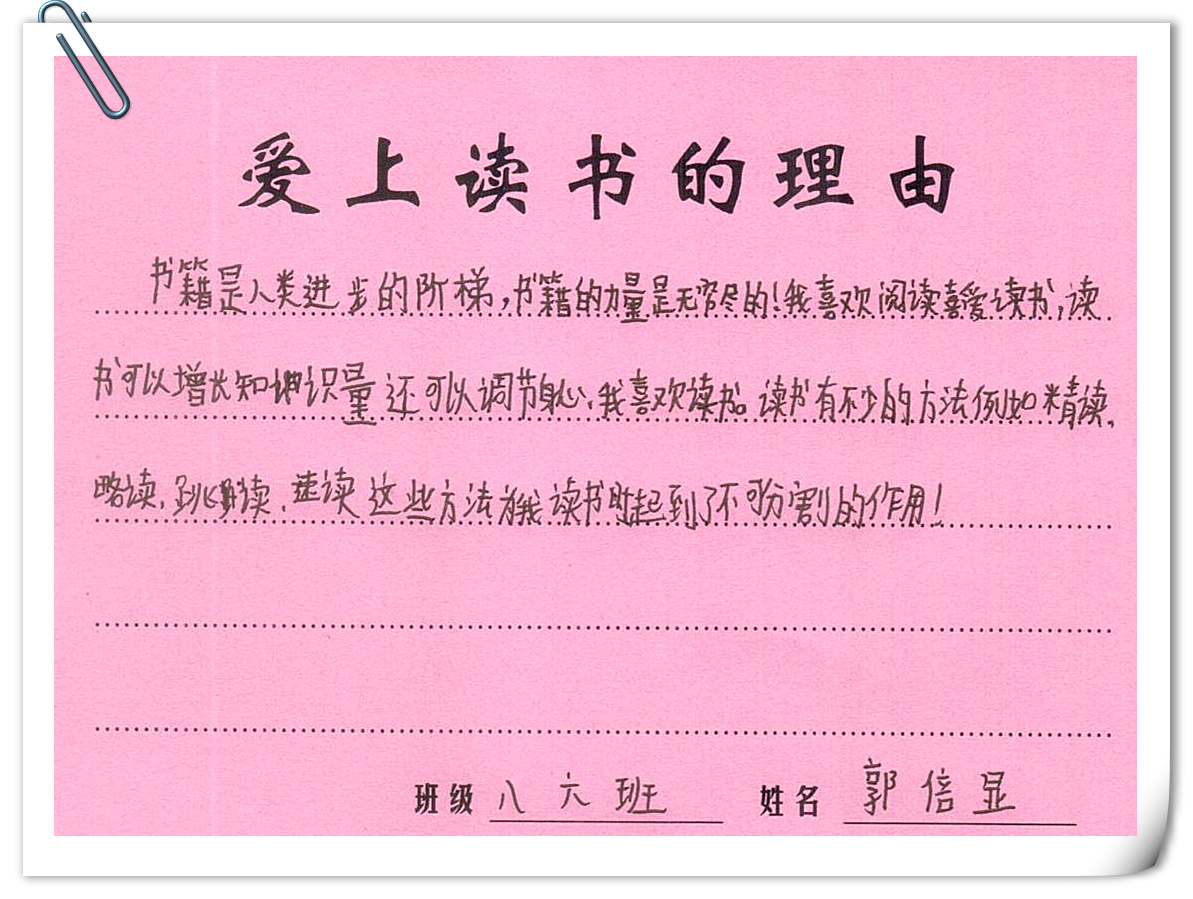 爱上读书的理由
书籍是人类进步的阶梯，书籍的力量是无穷尽的！我喜欢阅读喜爱读书，读
书可以增长知识量还可以调节身心、我喜欢读书。读书有不少的方法例如精读、
略读、跳读、速读这些方法为我读书时起到了不可分割的作用！
班级 八六班 姓名 郭倍显